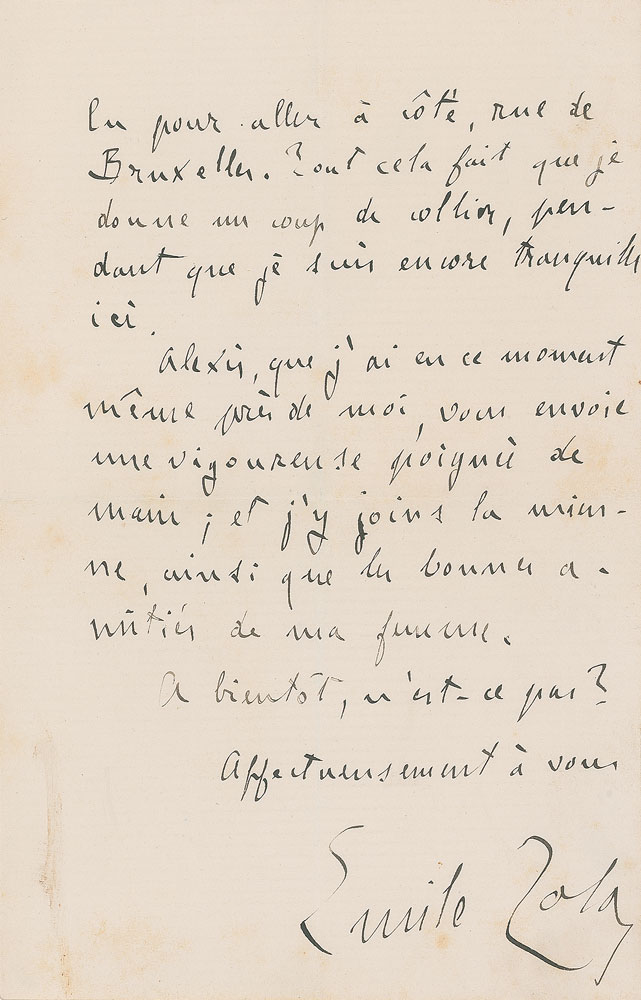 lu pour aller à côté, rue de
Bruxelles. Tout cela fait que je
donne un coup de collier, pen-
dant que je suis encore tranquille
ici.
Alexis, que j'ai en ce moment
même près de moi, vous envoie
une vigoureuse poignée de
main ; et j'y joins la mien-
ne, ainsi que les bonnes a-
mitiés de ma femme.
A bientôt, n'est-ce pas ?
Affectueusement à vous
Emile Zola